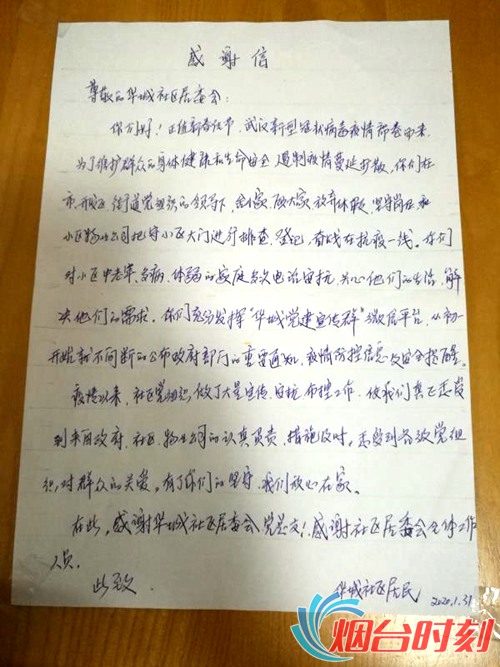 感谢信
尊敬的华城社区居委会:
你们好!正值新春佳节,武汉新型冠状病毒疫情席卷而来,
为了维护群众的身体健康和生命安全,遏制疫情蔓延扩散,你们在
市、开发区、街道党组织的领导下,舍小家、顾大家,放弃休假,坚守岗位,和
小区物业公司把守小区大门进行排查、登记,奋战在抗疫一线。你们
对小区中老年、多病、体弱的家庭多次电话安抚,关心他们的生活,解
决他们的需求。你们充分发挥“华城党建宣传群”发展平台,从初一
开始就不间断的公布政府部门的重要通知、疫情防控信息及安全提醒。
疫情以来,社区党组织,做了大量宣传、安抚、布控工作,使我们真正感受
到来自政府、社区、物业公司的认真负责,措施及时,感受到各级党组
织对群众的关爱。有了你们的坚守,我们放心在家。
在此,感谢华城社区居委会、党总支!感谢社区居委会全体工作
人员。
此致
华城社区居民
2020.1.31
烟台时刻